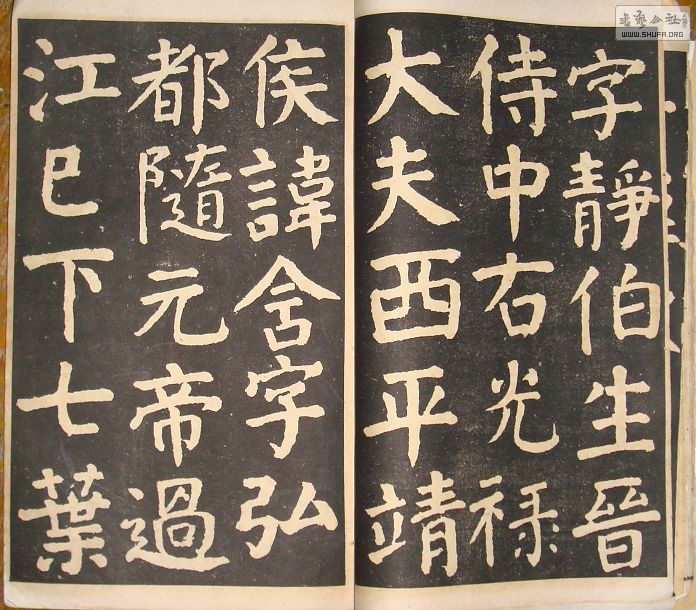 字靜伯生晉
侍中右光禄
大夫西平靖
侯諱含字弘
都隨元帝過
江已下七葉
書藝公社
WWW.SHUFA.ORG